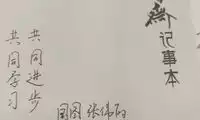 记事本
共同进步
共同学习
国图 张伟